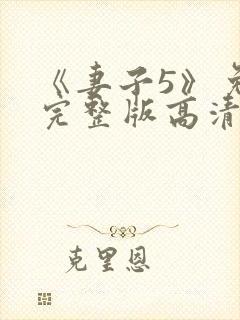 《妻子5》免
完整版高清
克里恩